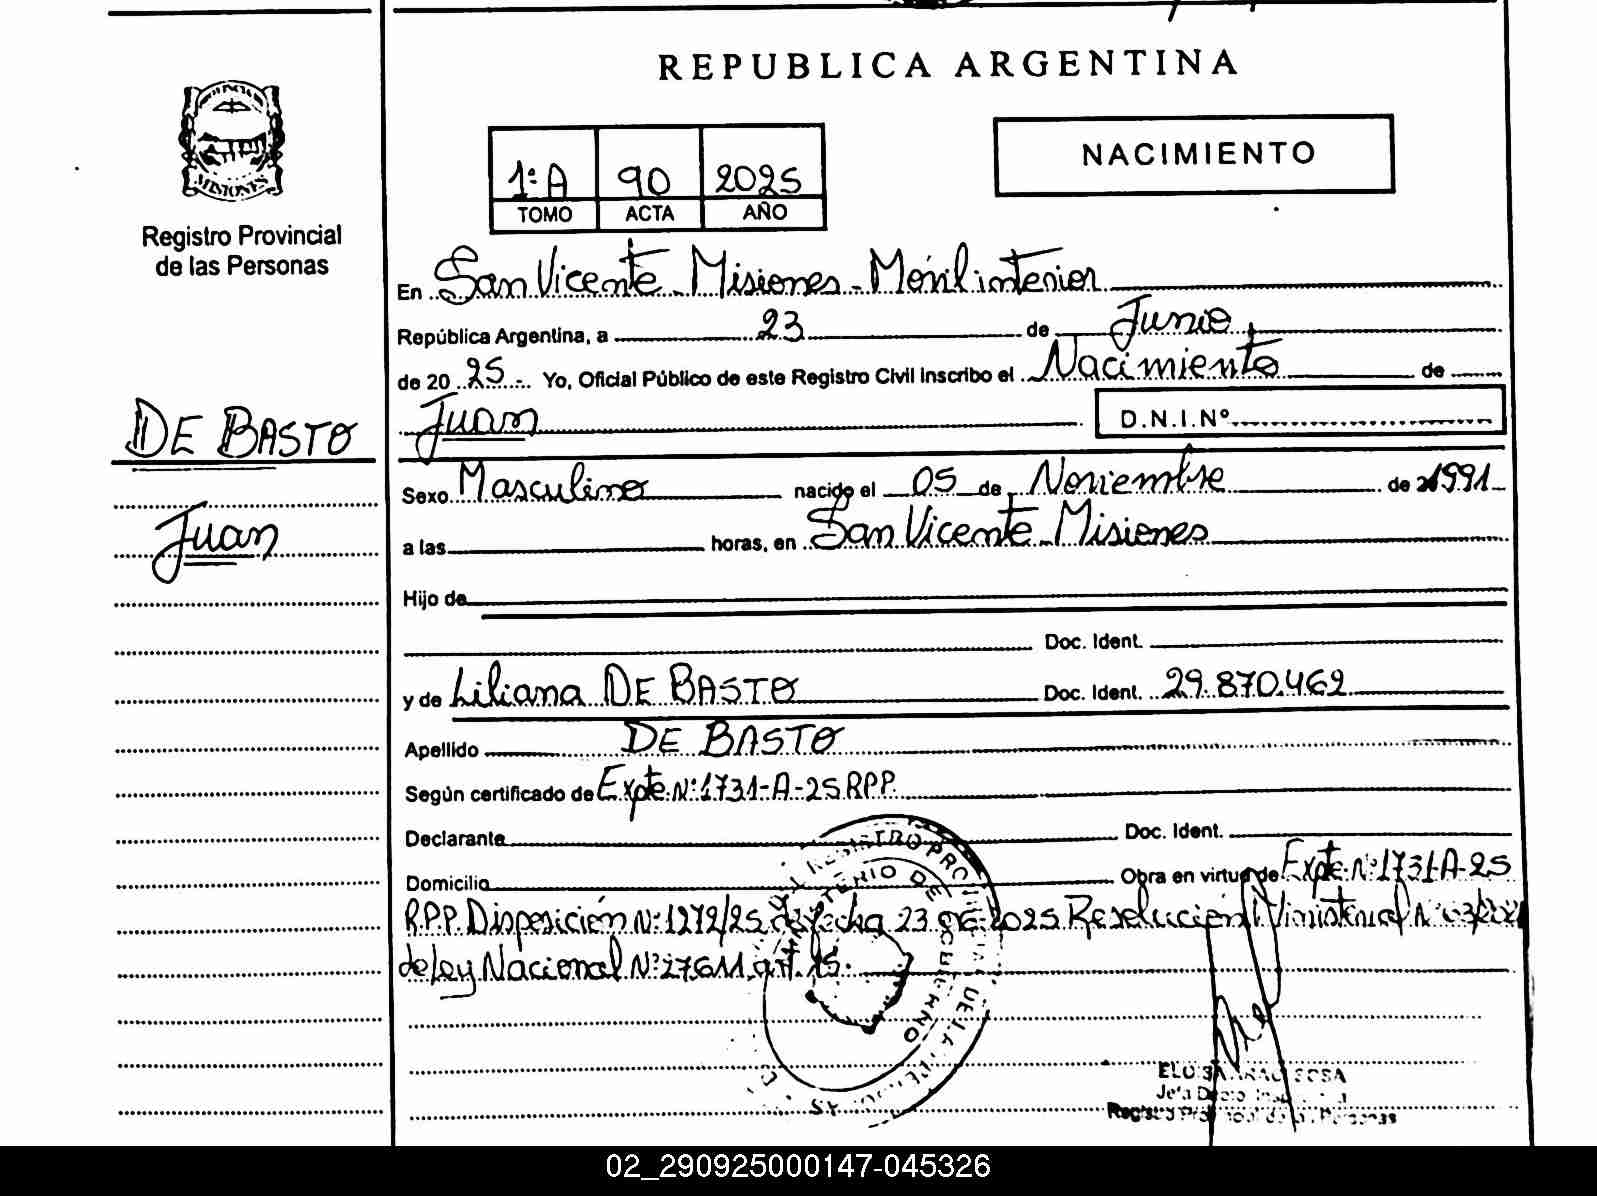 REPUBLICA ARGENTINA
NACIMIENTO
1ª A 90 2025
TOMO ACTA AÑO
MISIONES
Registro Provincial
de las Personas
En San Vicente - Misiones - Móvil interior
República Argentina, a 23 de Junio
de 20 25 -. Yo, Oficial Público de este Registro Civil inscribo el Nacimiento de
Juan
D.N.I.Nº
DE BASTO
Juan
Sexo Masculino nacido el 05 de Noviembre de 1991
a las horas, en San Vicente - Misiones
Hijo de
Doc. Ident.
y de Liliana DE BASTO Doc. Ident. 29.870.462
Apellido DE BASTO
Según certificado de Expte. Nº 1731-A-25 RPP.
Declarante Doc. Ident.
Domicilio Obra en virtud de Expte. Nº 1731-A-25
R.P.P. Disposición Nº 1272/25 de fecha 23 06 2025 Resolución Ministerial Nº
de Ley Nacional Nº 27611 art. 15.
REGISTRO DE LAS PERSONAS
MINISTERIO DE GOBIERNO
SOSA
Jefa Dpto
Registro Provincial de las Personas
02_290925000147-045326